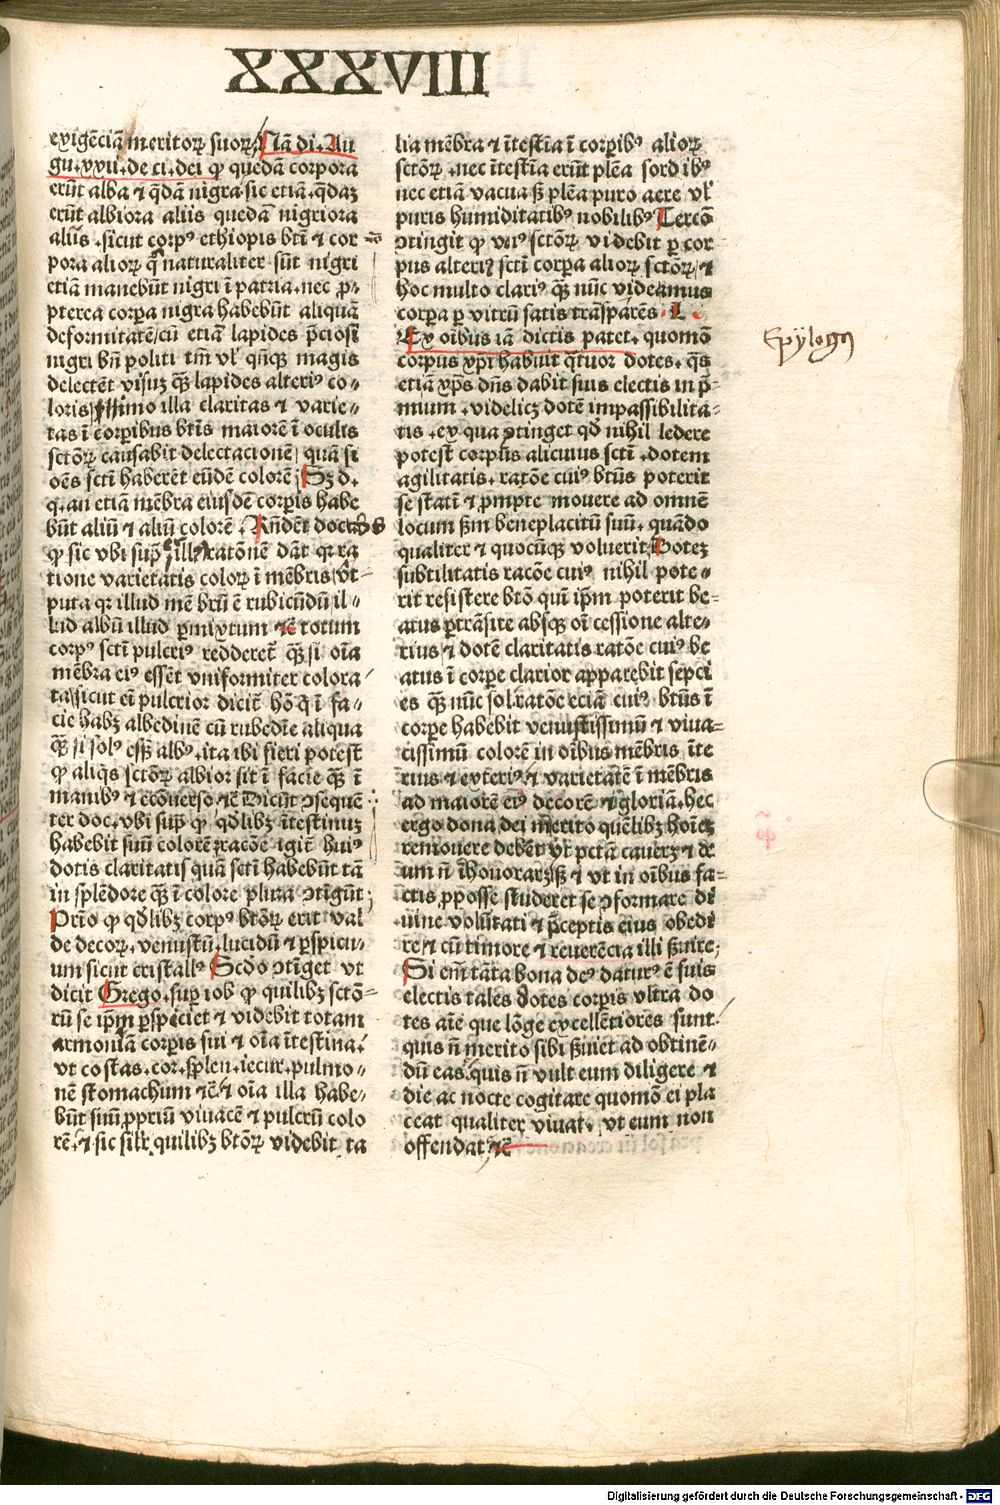 XXXVIII
exigēciā meritoꝝ suoꝝ Nā di. Au
gu. xxii. de ci. dei ꝙ quedā corpora
erūt alba ⁊ q̄dā nigra sic etiā. q̄daꝫ
erūt albiora aliis quedā nigriora
aliis. sicut corpꝰ ethiopis bt̄i ⁊ cor
pora alioꝝ q̄ naturaliter sūt nigri
etiā manebūt nigri ī patria. nec ꝓ⸗
pterea corꝑa nigra habebūt aliquā
deformitatē/ cū etiā lapides p̄ciosi
nigri bn̄ politi tm̄ vl̓ qn̄qꝫ magis
delectēt visuꝫ q̄ꝫ lapides alteriꝰ co⸗
loris immo illa claritas ⁊ varie⸗
tas ī corꝑibus bt̄is maiorē ī oculis
sctōꝝ causabit delectacionē quā si
oēs scti haberēt eūdē colorē Sꝫ d.
q. an etiā mēbra eiusdē corꝑis habe
būt aliū ⁊ aliū colorē. Rn̄dēt doc
ꝙ sic vbi sup̄ illī ratōnē dāt qꝛ ra
tione varietatis coloꝝ ī mēbris vt̄
puta qꝛ illud mēbrū ē rubicūdū il⸗
lud albū illud ꝑmixtum ⁊c̄ totum
corpꝰ scti pulcriꝰ redderet q̄ꝫ si oīa
mēbra eiꝰ essēt vniformiter colora
ta sicut eī pulcrior dicit̄ hō q̄ ī fa⸗
cie habꝫ albedinē cū rubedīe aliqua
q̄ꝫ si solꝰ essꝫ albꝰ. ita ibi fieri potest
ꝙ aliq̄s sctōꝝ albior sit ī facie q̄ꝫ ī
manibꝰ ⁊ ecōuerso ⁊c̄ Dicūt ↄsequē
ter doc. vbi sup̄ ꝙ qd̄libꝫ ītestinuꝫ
habebit suū colorē racōe igit̄ huiꝰ
dotis claritatis quā scti habebūt tā
in splēdore q̄ꝫ ī colore plura ↄtigūt
Prīo ꝙ qd̄libꝫ corpꝰ btōꝝ erit val
de decoꝝ. venustū. lucidū ⁊ ꝑspicu⸗
um sicut cristallꝰ Scd̄o ↄtīget vt
dicit Grego. sup̄ iob ꝙ quilibꝫ sctō⸗
rū se ip̄m ꝑspiciet ⁊ videbit totam
armoniā corꝑis sui ⁊ oīa ītestina.
vt costas. cor. splen. iecur. pulmo⸗
nē stomachum ⁊c̄ ⁊ oīa illa habe⸗
būt suū ꝓpriū viuacē ⁊ pulcrū colo
rē. ⁊ sic sil̓r quilibꝫ btōꝝ videbit ta
lia mēbra ⁊ ītestīa ī corꝑibꝰ alioꝝ
sctōꝝ. nec ītestīa erūt plēa sordibꝰ
nec etiā vacua sꝫ plēa puro aere vl̓
puris humiditatibꝰ nobilibꝰ Tercō
ↄtingit ꝙ vnꝰ sctōꝝ videbit ꝑ cor
pus alteriꝰ scti corꝑa alioꝝ sctōꝝ ⁊
hoc multo clariꝰ q̄ꝫ nūc videamus
corꝑa ꝑ vitrū satis trāsparēs. L.
Ex oībus iā dictis patet. quomō
corpus xp̄i habuit q̄tuor dotes. q̄s
etiā xp̄s dn̄s dabit suis electis in p̄⸗
mium. videlicꝫ dotē impassibilita⸗
tis. ex qua ↄtinget qd̄ nihil ledere
potest corpus alicuius scti. dotem
agilitatis. ratōe cuiꝰ btūs poterit
se statī ⁊ ꝓmpte mouere ad omnē
locum ẜm beneplacitū suū. quādo
qualiter ⁊ quocūqꝫ voluerit Doteꝫ
subtilitatis racōe cuiꝰ nihil pote⸗
rit resistere btō quī ip̄m poterit be⸗
atus ꝑtrāsire absqꝫ oī cessione alte⸗
rius ⁊ dotē claritatis ratōe cuiꝰ be
atus ī corꝑe clarior apparebit septi
es q̄ꝫ nūc sol. ratōe eciā cuiꝰ btūs ī
corꝑe habebit venustissimū ⁊ viua⸗
cissimū colorē in oībus mēbris īte
rius ⁊ exteriꝰ ⁊ varietatē ī mēbris
ad maiorē eiꝰ decorē ⁊ gloriā. hec
ergo dona dei merito quēlibꝫ hoīeꝫ
remouere debēt vt pctā caueꝛꝫ ⁊ de
um n̄ īhonoraꝛꝫ sꝫ ⁊ vt in oībus fa⸗
ctis ꝓ posse studeret se ↄformare di
uine volūtati ⁊ p̄ceptis eius obedi
re ⁊ cū timore ⁊ reuerēcia illi ẜuire;
Si em̄ tāta bona deꝰ daturꝰ ē suis
electis tales dotes corꝑis vltra do
tes aīe que lōge excellētiores sunt.
quis n̄ merito sibi ẜuiet ad obtinē⸗
dū eas quis n̄ vult eum diligere ⁊
die ac nocte cogitare quomō ei pla
ceat qualiter viuat. vt eum non
offendat ⁊c̄
Epÿlogꝰ
Digitalisierung gefördert durch die Deutsche Forschungsgemeinschaft - DFG